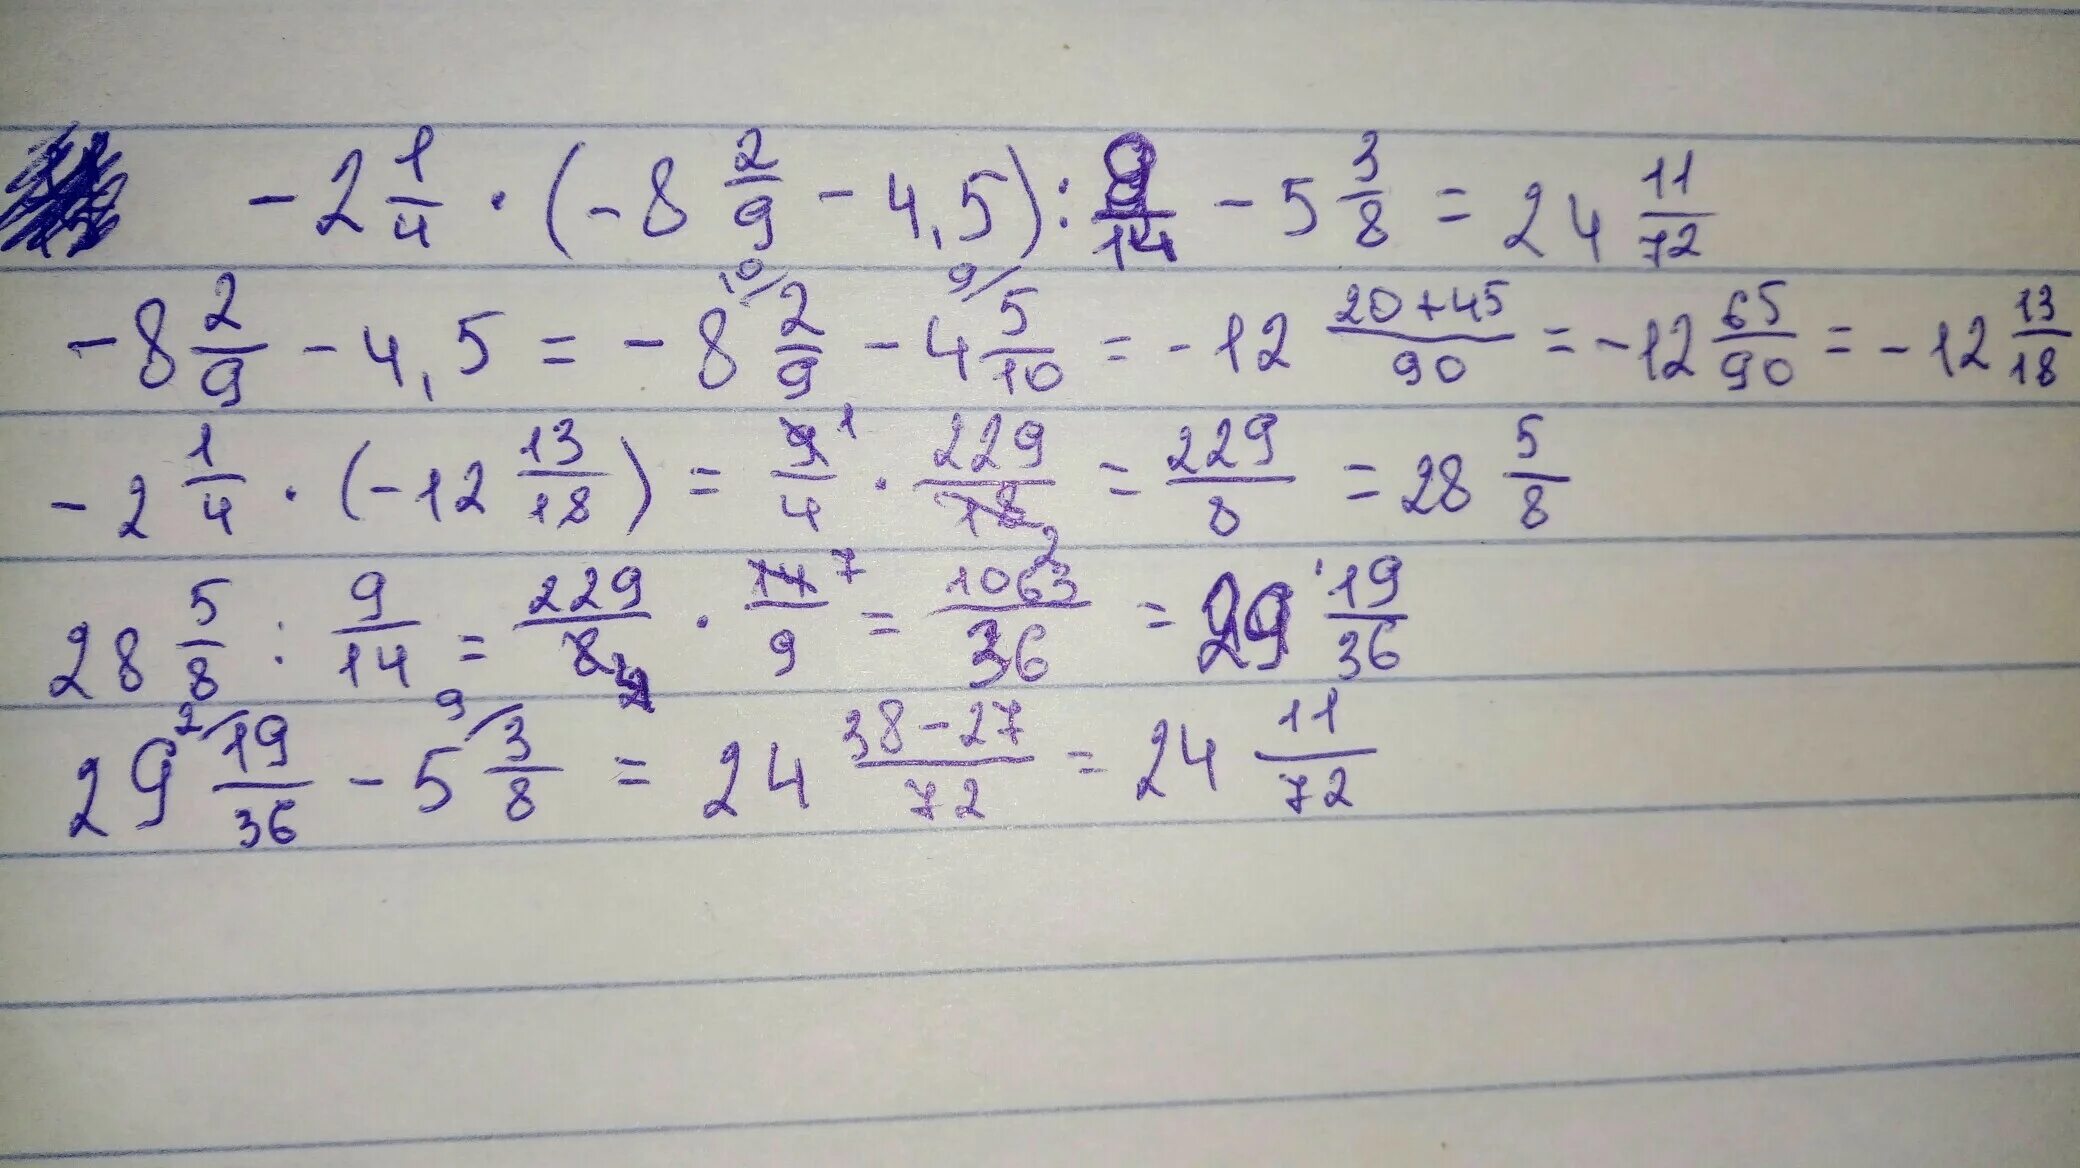 -2 1/4 · (-8 2/9 - 4,5) : 9/14 - 5 3/8 = 24 11/72
-8 2/9 - 4,5 = -8 10/ 2/9 - 4 9/ 5/10 = -12 20+45/90 = -12 65/90 = -12 13/18
-2 1/4 · (-12 13/18) = 9 1/4 · 229/18 2 = 229/8 = 28 5/8
28 5/8 : 9/14 = 229/8 4 · 14 7/9 = 1063/36 = 29 19/36
29 2/ 19/36 - 5 9/ 3/8 = 24 38-27/72 = 24 11/72